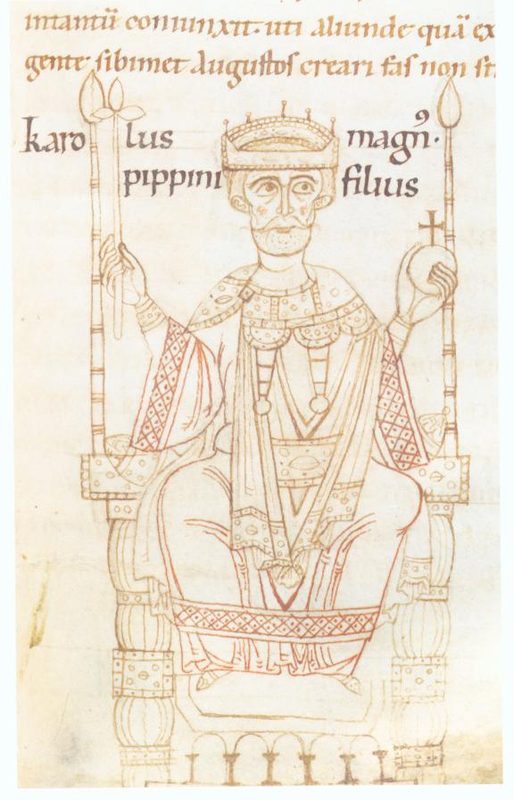 intantū coniunxit· uti aliunde quā ex
gente sibimet augustos creari fas non
karolus magnꝰ·
pippini filius